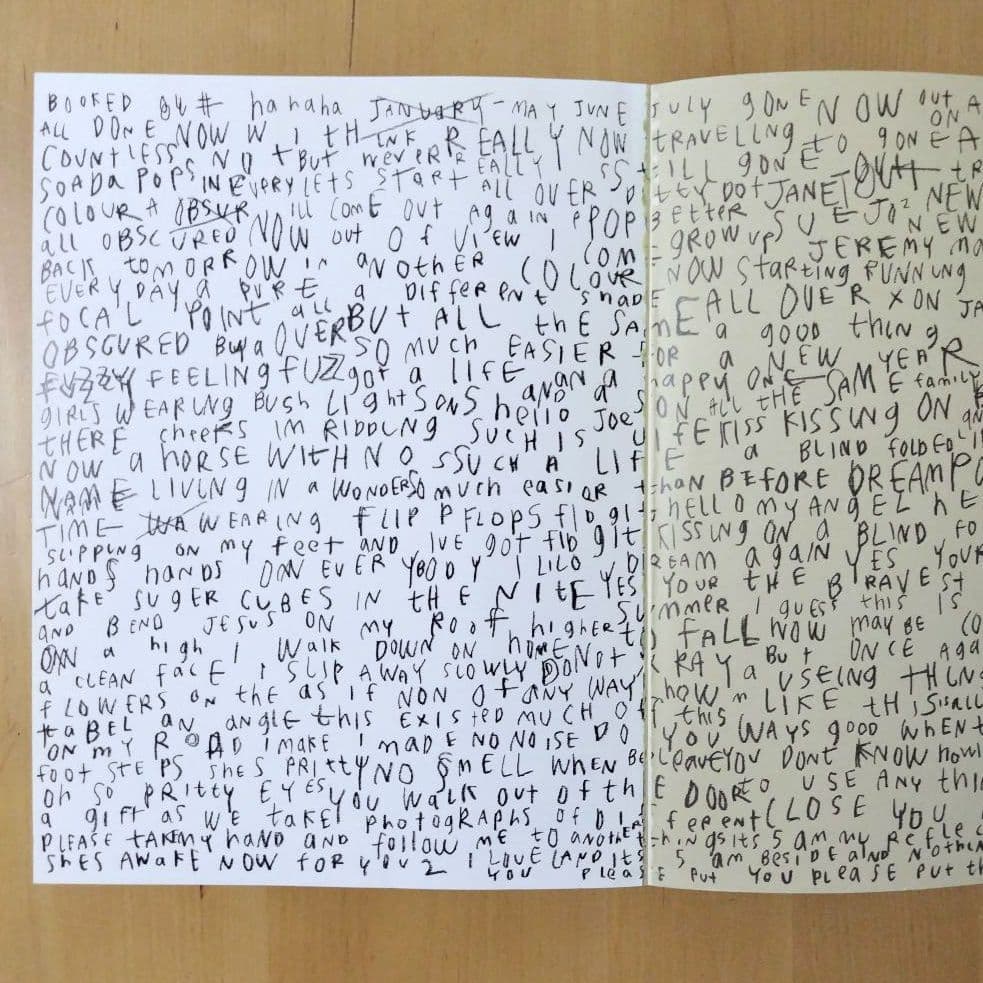 BOOKED out # hahaha JANUARY - MAY JUNE JULY gONE NOW OUT A
ALL DONE NOW WITH INK REALLY NOW TRAVELLINg tO gONE A ON
COUNTLESS ND tBUt NeVERR EALLY I SStILL gONE OUtt tR
SOADA POPS IN EVERY LETS StARt ALL OVER DOttY DOt JANET NEW
COLOUR A OBSUR ILL COME OUT AgAIN PPOP BEttER SUE JO² NEW
all OBSCURED NOW OUT Of VIEW I COME - gROW UPS JEREMY
BACK tOMORROW in aNOtHER COLOUR NOW StARtINg RUNNUNg
EVERY DAY A PURE a DIffERENt ShADE ALL OVER X ON JA
fOCAL POINT all OVER BUt ALL thE SAME a gOOD thINg
OBSCURED BUya SO MUCH EASIER fOR a NEW YEAR
FUZZY fEELINg fUZZ gOt a LIfE AN a happy ONE SAME family
gIRLS WEARINg BUSH LIghtSONS AND a SON ALL tHE
THERE cheeks IM RIDDLNg hello Joe SUCH IS LIfE KISS KISSINg ON
NOW a hORSE WItH NO SSUCH A LIfE a BLIND fOLDED
NAME LIVINg IN a WONDERSO mUCH easIOR thAN BEfORE DREAM
TIME WA WEARINg fLIP PfLOPS fIDgIt hELLO MY ANgEL hE
SLIPPINg ON my feet AND IVE gOt fIDgIt KISSINg ON a BLIND fO
hANDS hANDS ON EVERYBODY I LILO DREAM agaIN YES YOUR
tAKE SUgER CUBES IN tHE NItE YES YOUR tHE BRAVEST
AND BEND JESUS ON MY ROOff hIghER SUmmER I gUESS thIS IS
ON a high I WaLK DOWN ON hOME tO fALL NOW mayBE CO
a CLEAN fACE I SLIP AWAY SLOWLY DONOt X RAY a BUt ONCE AgA
fLOWERS ON thE as If NON Of ANY WAY USEINg tHINg
tABEL AN aNgLE thIS EXIStED mUCH Off thIS how LIKE tHIS
ON mY ROAD I maKE I maDE NO NOISE DO YOU WAYS gOOD WhEN t
fOOt StEPS ShES PRIttY NO SmELL WhEN BE LeaVE YOU DONt KNOW
Oh SO PRIttY EYES YOU WaLK OUt Of thE DOOR tO USE ANy thIN
a gIft AS WE tAKE PhOtOgRAPhS Of DIffeRENt CLOSE YOU
PLEASE TAKE MY hAND AND fOLLOW mE tO aNOthER thINgS ItS 5 am my REfLEC
ShES AWAKE NOW fOR YOU 2 I LOVE LAND ItS 5 am BESIDE AND NOthEN
YOU PLEASE PUt YOU PLEASE PUt th